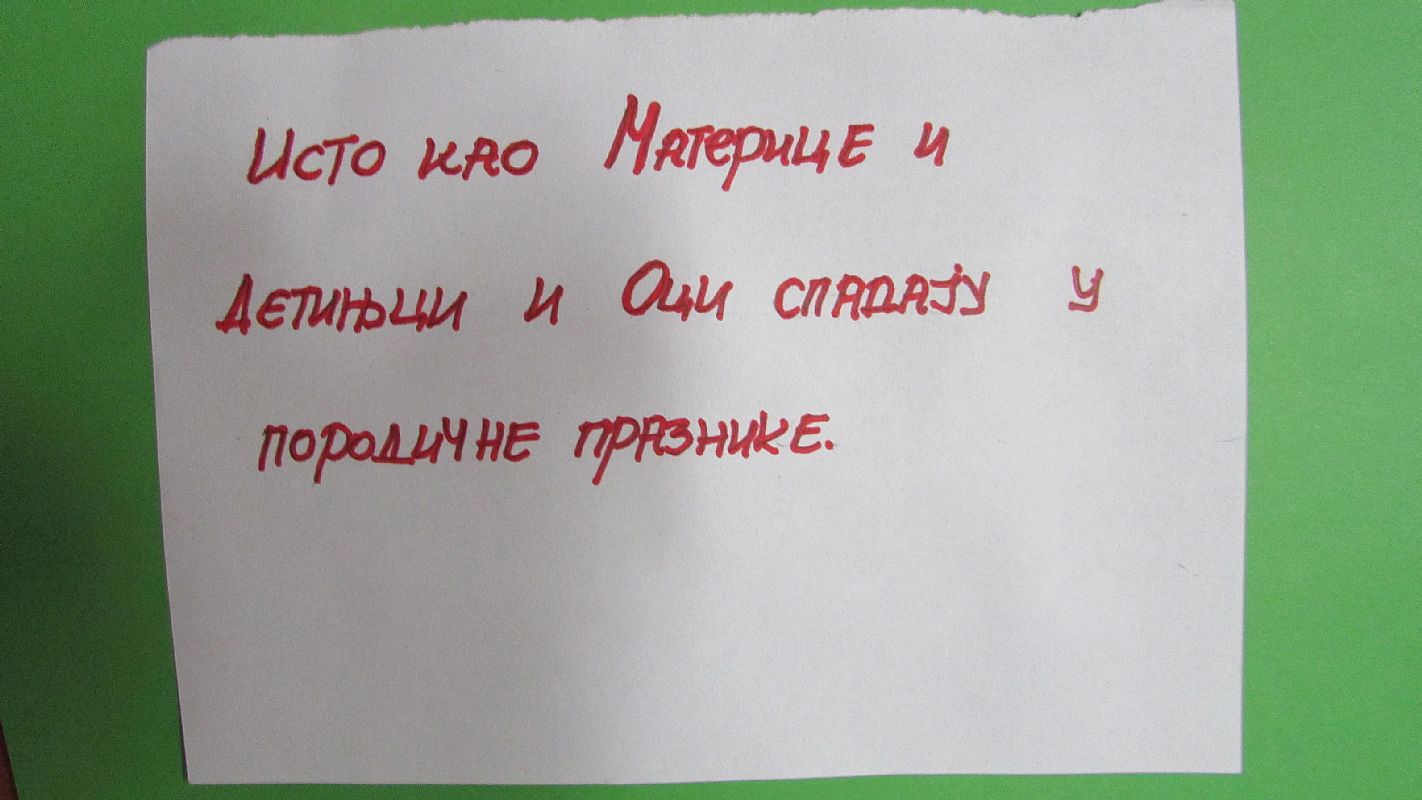 Исто као Материце и
Детињци и Оци спадају у
породичне празнике.